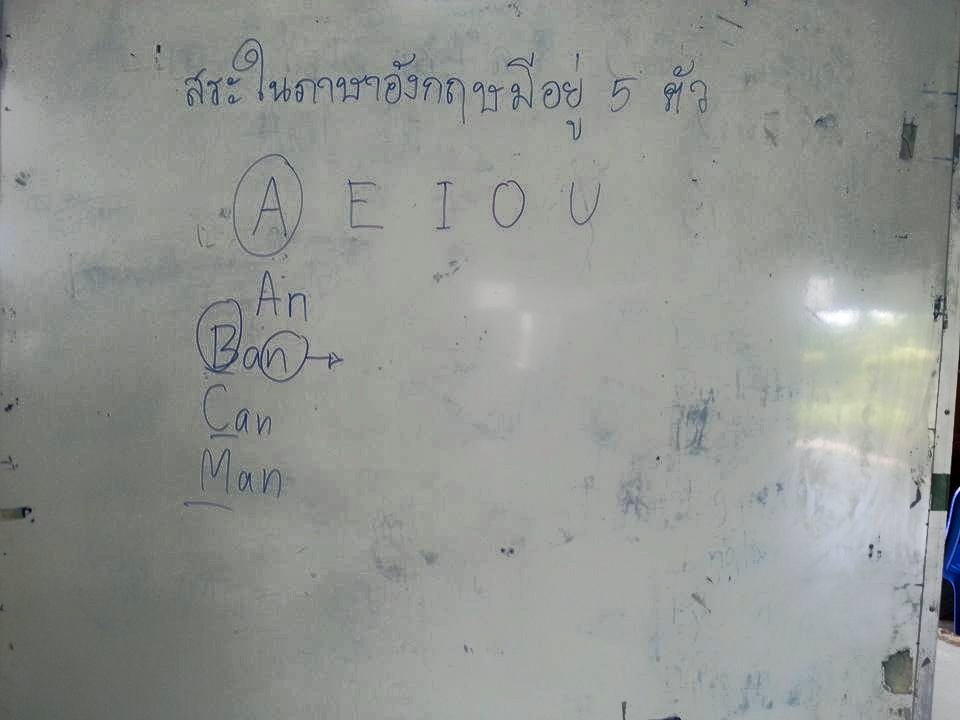 สระในภาษาอังกฤษมีอยู่ 5 ตัว
A E I O U
An
Ban →
Can
Man